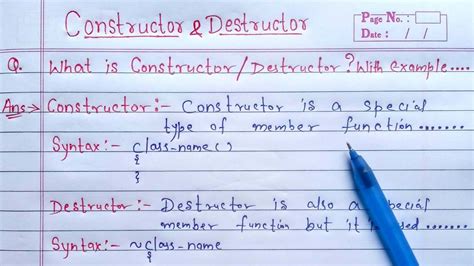 Constructor & Destructor
Page No. :
Date : / /
Q. What is Constructor/Destructor? With example....
Ans → Constructor:- Constructor is a special
type of member function .......
Syntax:- class-name()
{
}
Destructor:- Destructor is also a
member function but it
Syntax:- ~class-name